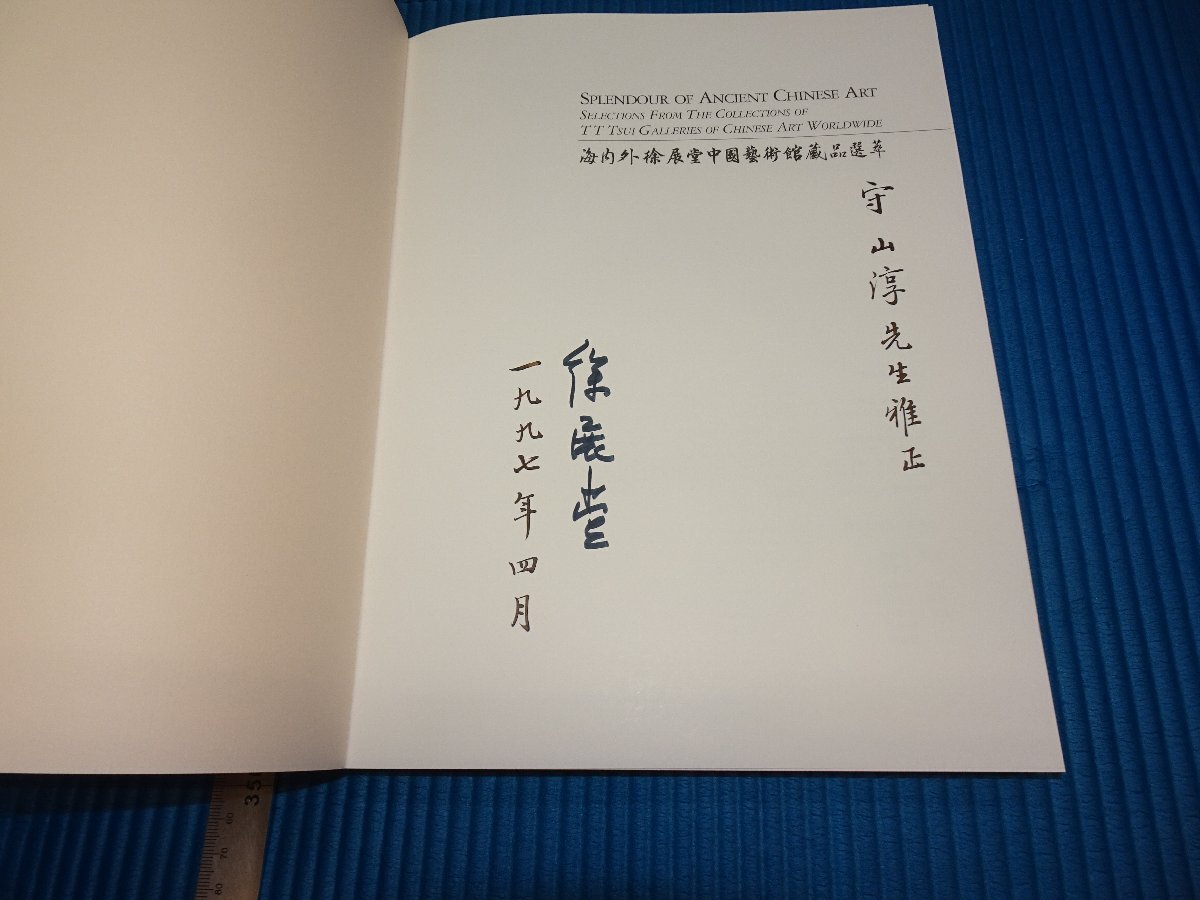 SPLENDOUR OF ANCIENT CHINESE ART
SELECTIONS FROM THE COLLECTIONS OF
T T TSUI GALLERIES OF CHINESE ART WORLDWIDE
海内外徐展堂中國藝術館藏品選萃
守山淳先生雅正
徐展堂
一九九七年四月
35
60
70
80